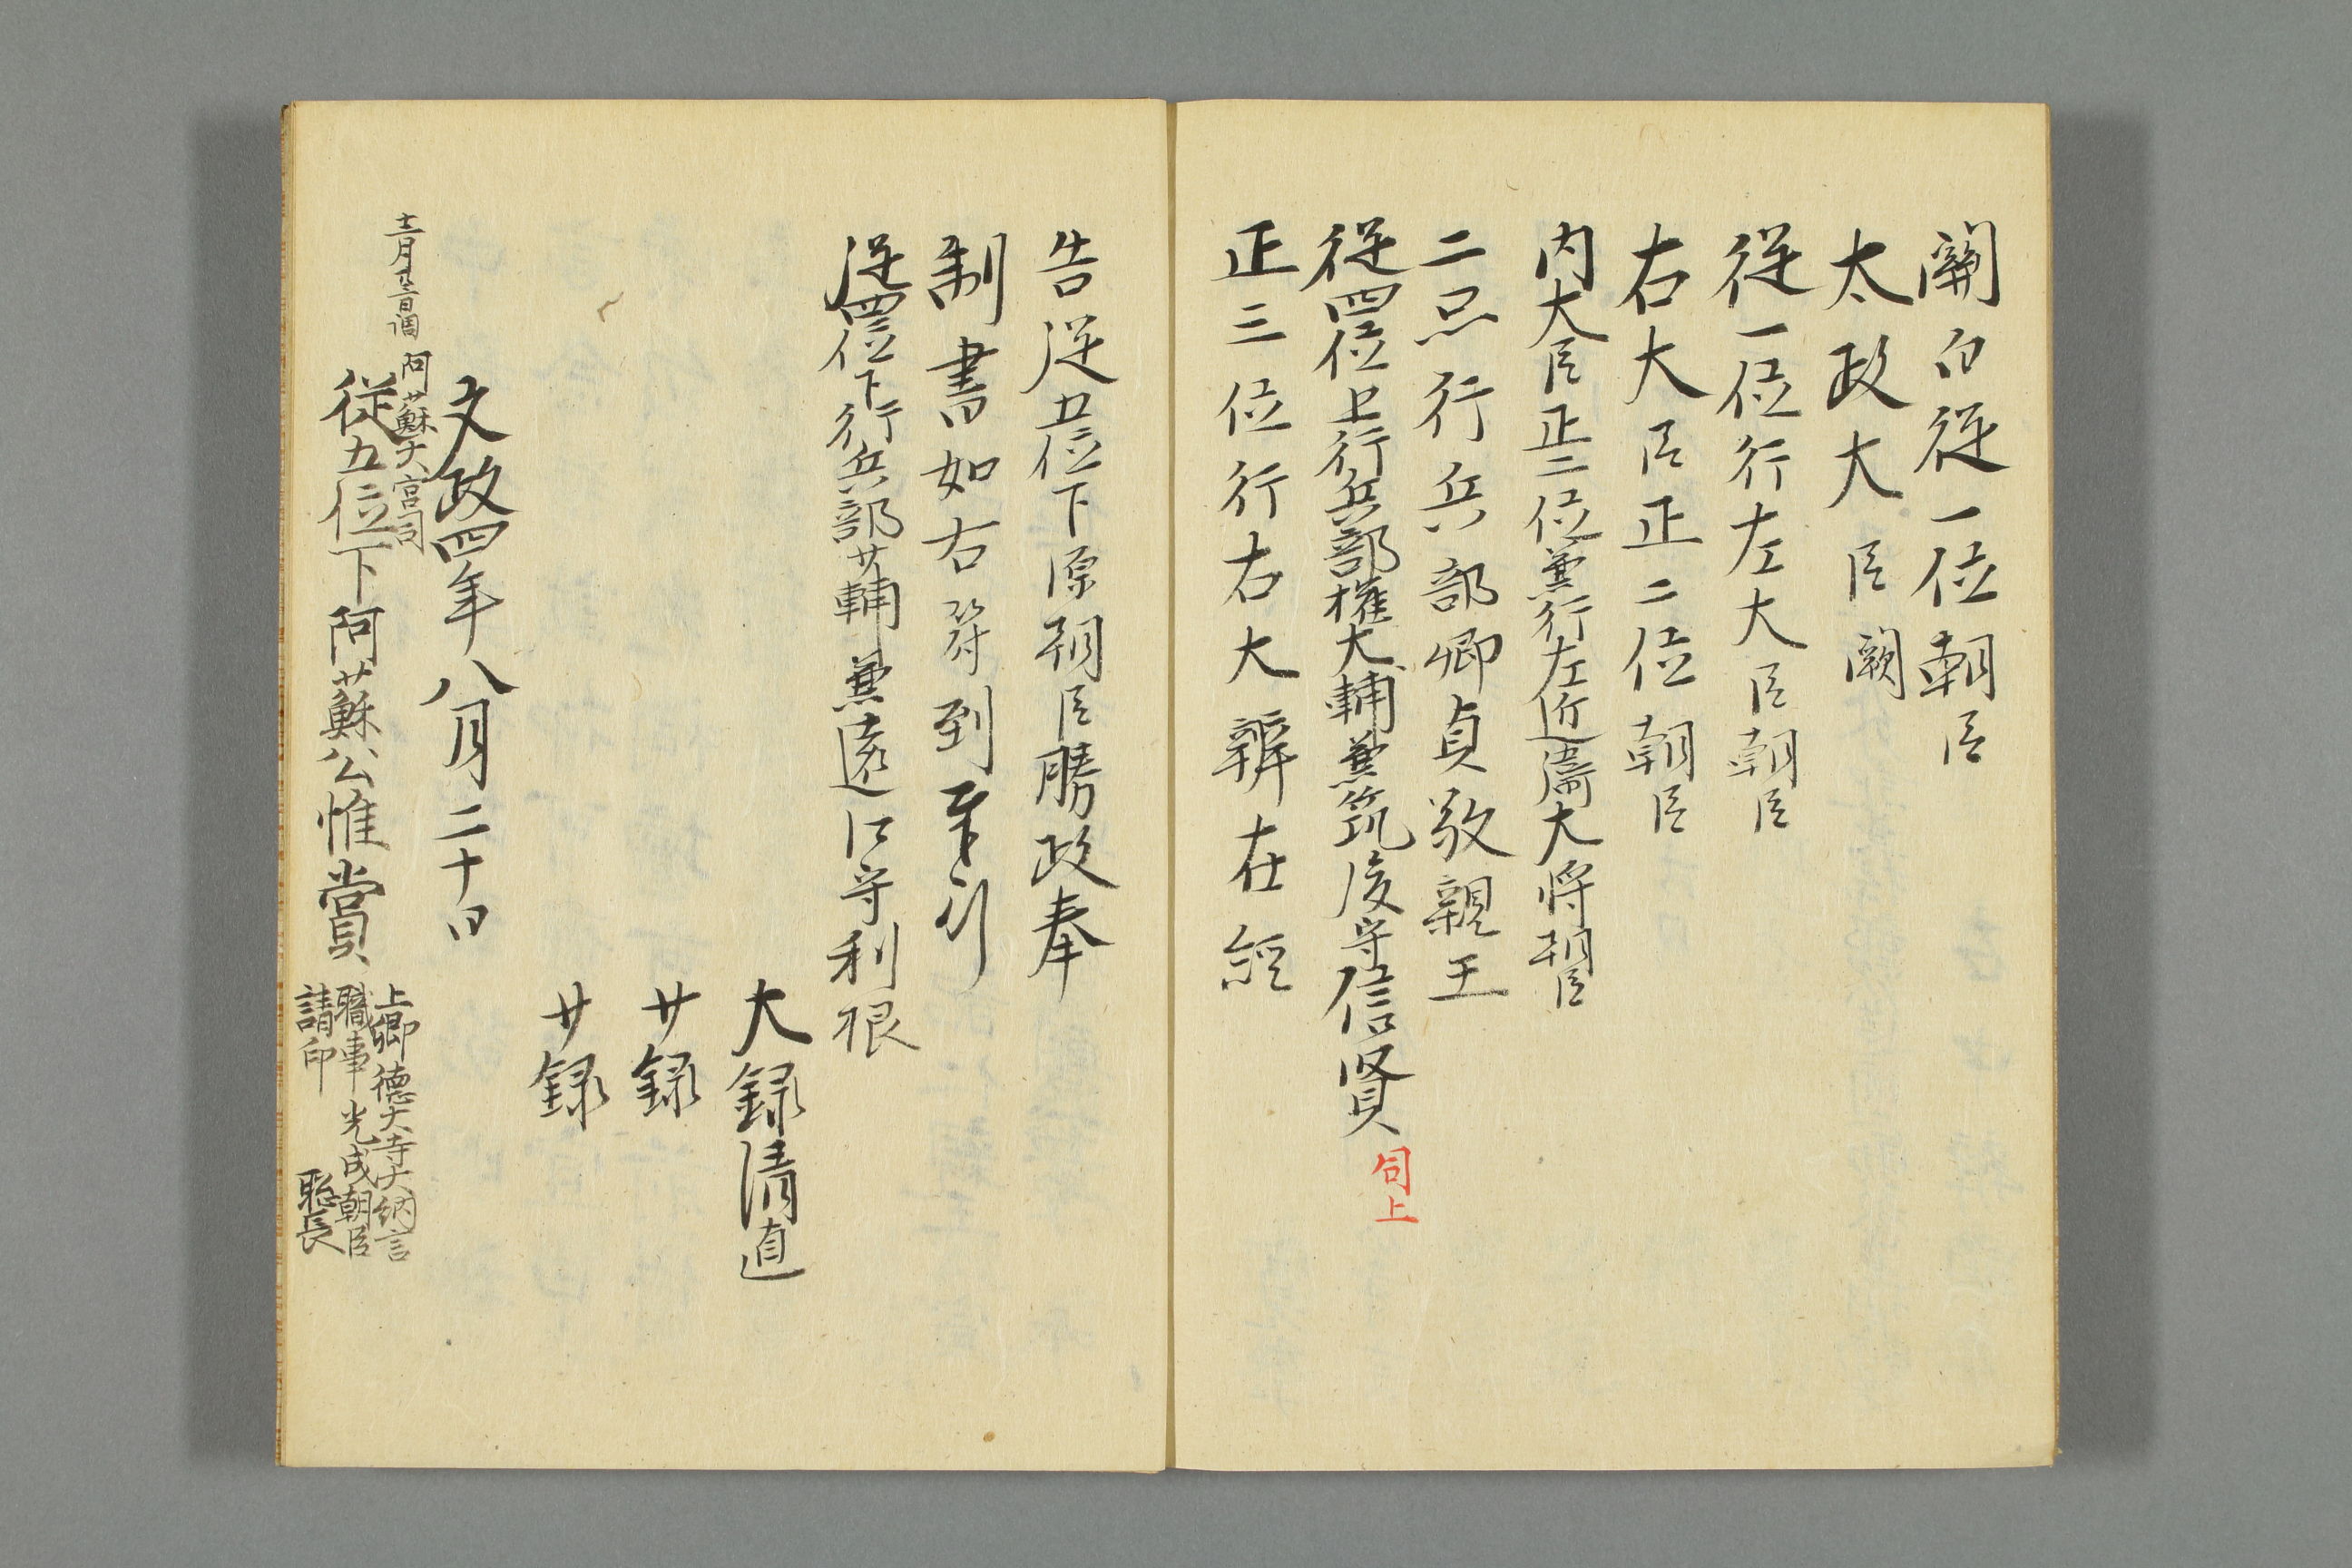 関白従一位朝臣
太政大臣闕
従一位行左大臣朝臣
右大臣正二位朝臣
内大臣正二位兼行左近衛大将朝臣
二品行兵部卿貞敬親王
従四位上行兵部権大輔兼筑後守信賢 同上
正三位行右大辨在經
告従五位下源朝臣勝政奉
制書如右符到奉行
従四位下行兵部少輔兼遠江守利根
大録清直
少録
少録
文政四年八月二十日
阿蘇大宮司
従五位下阿蘇公惟賞
上卿 德大寺大納言
職事 光成朝臣
請印 聡長